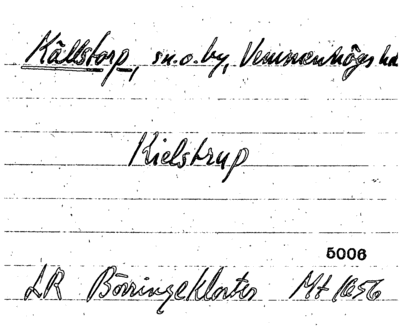 Källstorp, sn. o. by, Vemmenhögs hd
Kielstrup
5006
LR Börringekloster Mt 1656